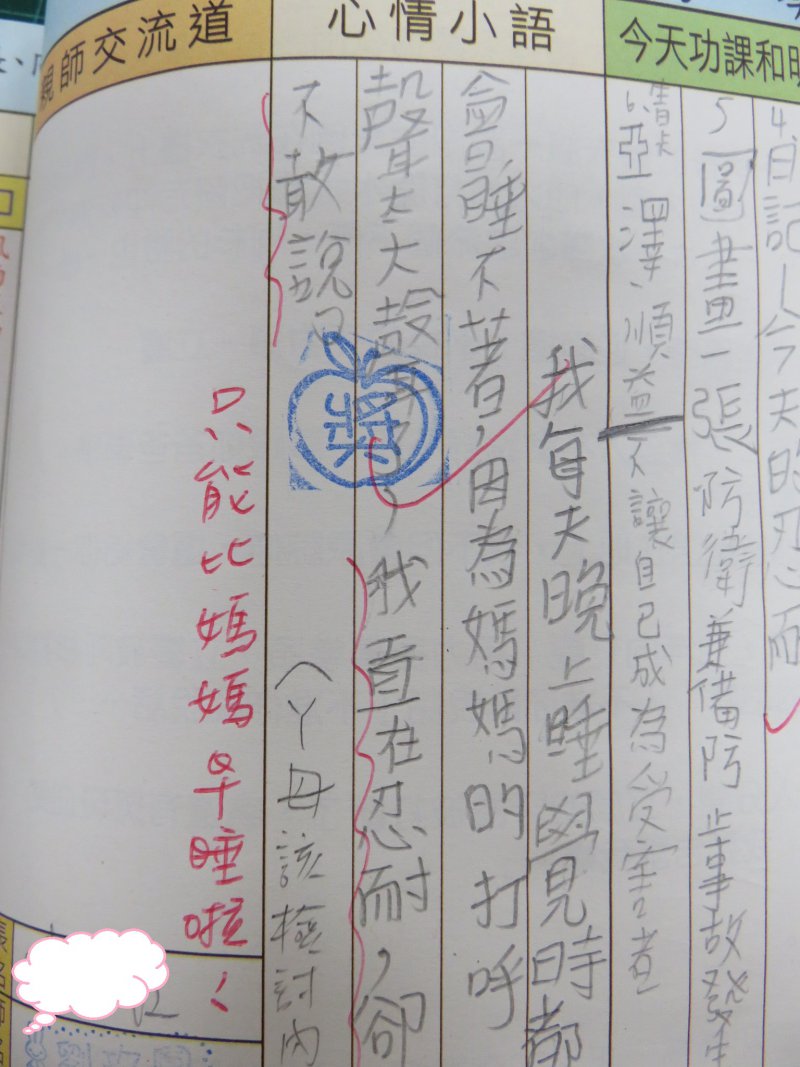 今天功課和
4.日記(今天的忍耐
5.圖畫一張防衛兼備防止事故發生
不讓自己成為受害者
心情小語
我每天晚上睡覺時都
會睡不著,因為媽媽的打呼
聲太大聲了,我直在忍耐,卻
不敢說。
(ㄚ母該檢討
獎
親師交流道
只能比媽媽早睡啦!